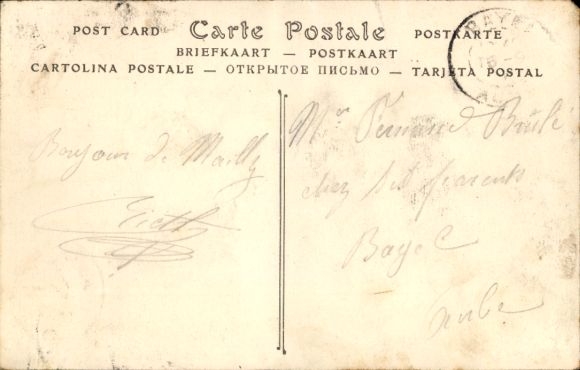 POST CARD Carte Postale POSTKARTE
BRIEFKAART — POSTKAART
CARTOLINA POSTALE — ОТКРЫТОЕ ПИСЬМО — TARJETA POSTAL
Bonjour de Mailly
Mr Fernand Brûlé
chez ses parents
Bayel
Aube